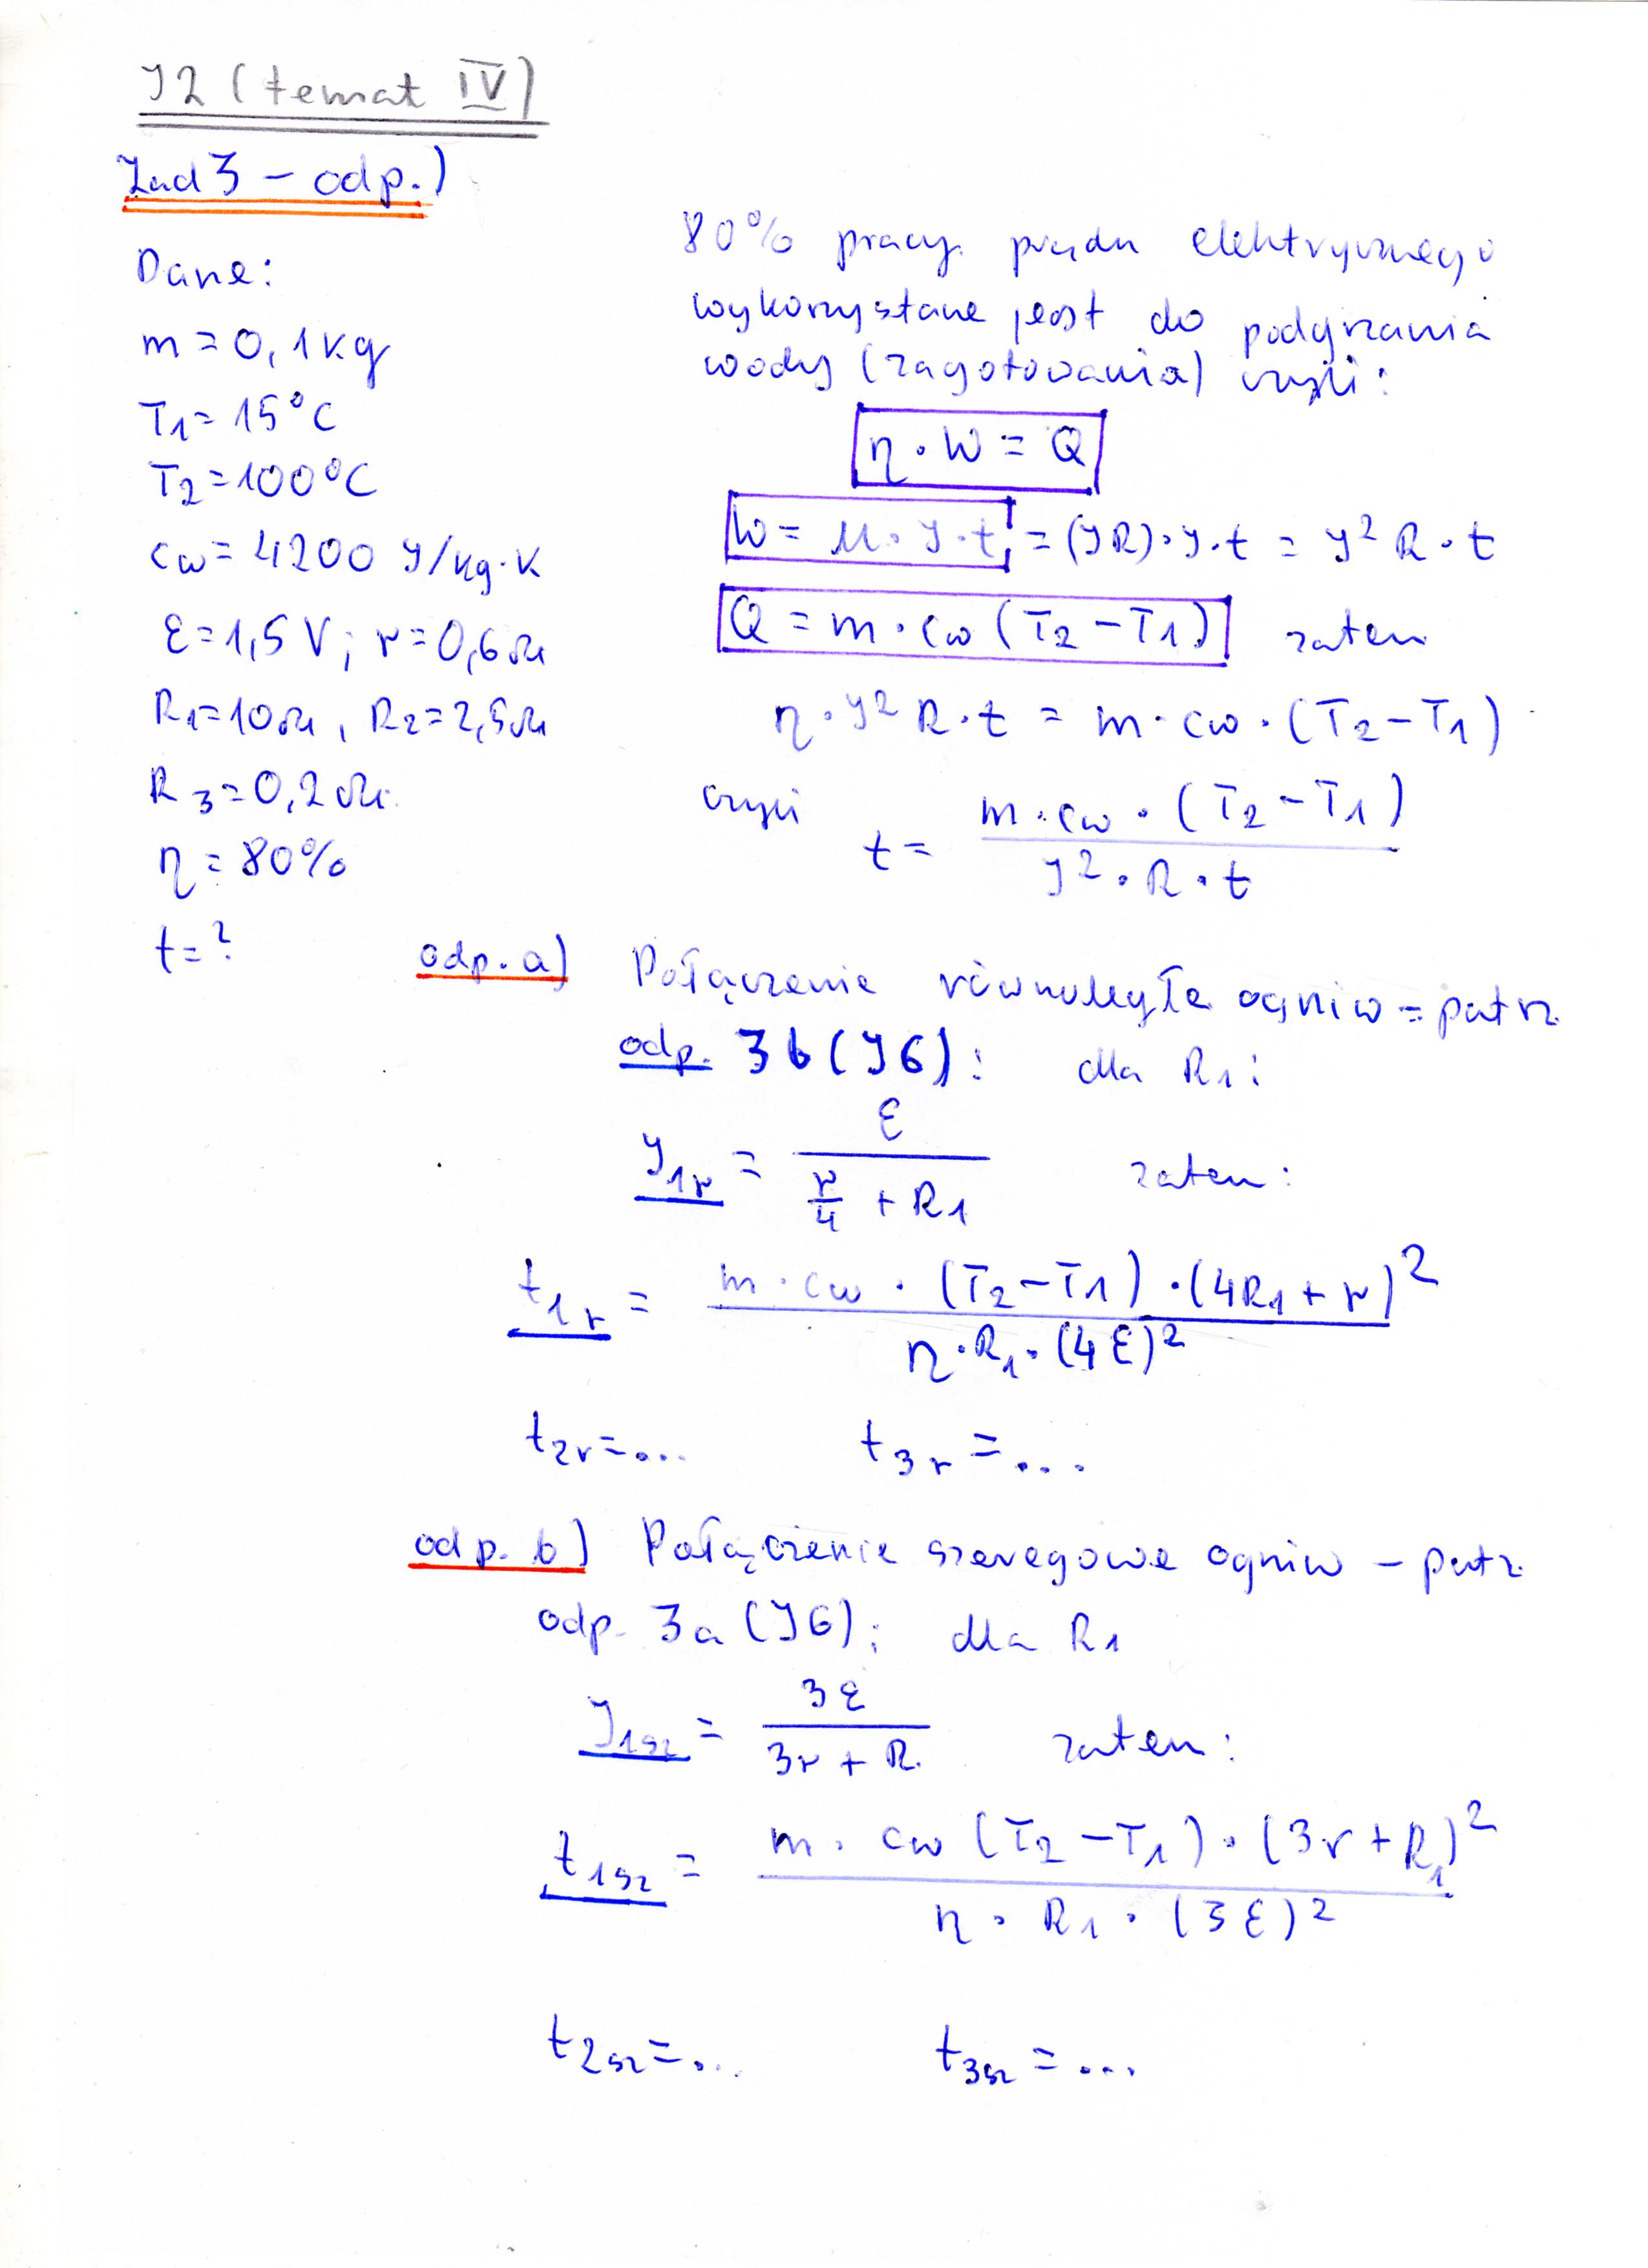 J2 (temat IV)
Zad 3 – odp.)
Dane:
m = 0,1 kg
T1 = 15°C
T2 = 100°C
cw = 4200 J/kg·K
ε = 1,5 V ; r = 0,6 Ω
R1 = 10 Ω , R2 = 2,5 Ω
R3 = 0,2 Ω
η = 80%
t = ?
80% pracy prądu elektrycznego
wykorzystane jest do podgrzania
wody (zagotowania) czyli :
η · W = Q
W = U · J · t = (J R) · J · t = J² R · t
Q = m · cw (T2 – T1) zatem
η · J² R · t = m · cw · (T2 – T1)
czyli t = m · cw · (T2 – T1) / J² · R · t
odp. a) Połączenie równoległe ogniw = patrz
odp. 3b (J6) : dla R1 :
J1r = ε / r/4 + R1 zatem :
t1r = m · cw · (T2 – T1) · (4R1 + r)² / η · R1 · (4ε)²
t2r = ... t3r = ...
odp. b) Połączenie szeregowe ogniw – patrz
odp. 3a (J6) ; dla R1
J1sz = 3ε / 3r + R zatem :
t1sz = m · cw (T2 – T1) · (3r + R1)² / η · R1 · (3ε)²
t2sz = ... t3sz = ...